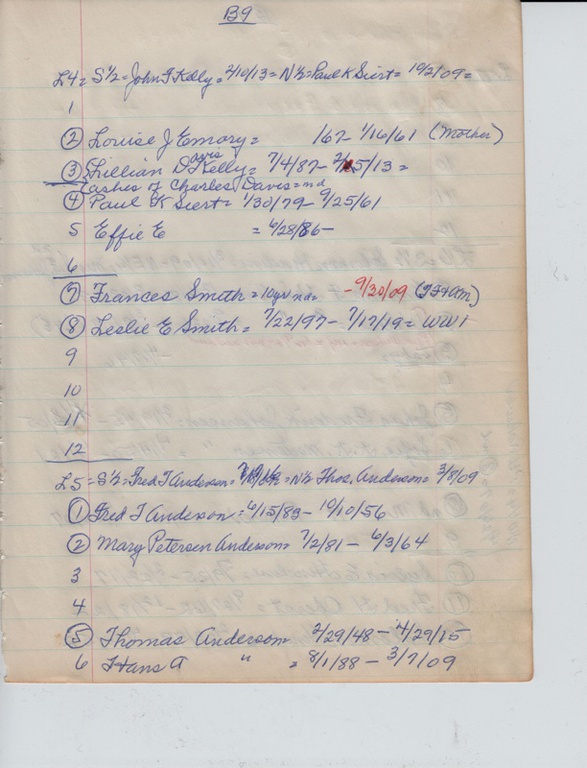 B9
L4 = S½ = John F Kelly = 2/10/13 = N½ = Paul K Siert = 10/2/09 =
1
2 Louise J Emory = 162- 1/16/61 (Mother)
3 Lillian Davis Kelly = 7/4/87- 5/13 =
ashes of Charles Davis = nd
4 Paul K Siert = 1/30/79 - 9/25/61
5 Effie E = 6/28/86 -
6
7 Frances Smith = 10yr nd = - 9/30/09
8 Leslie E Smith = 7/22/97 - 7/17/19 = WWI
9
10
11
12
L5 = S½ = Fred T Anderson = = N½ Thos. Anderson = 3/8/09
1 Fred T Anderson = 6/15/83 - 10/10/56
2 Mary Petersen Anderson = 7/2/81 - 6/3/64
3
4
5 Thomas Anderson 2/29/48 - 4/29/15
6 Hans A " = 8/1/88 - 3/7/09